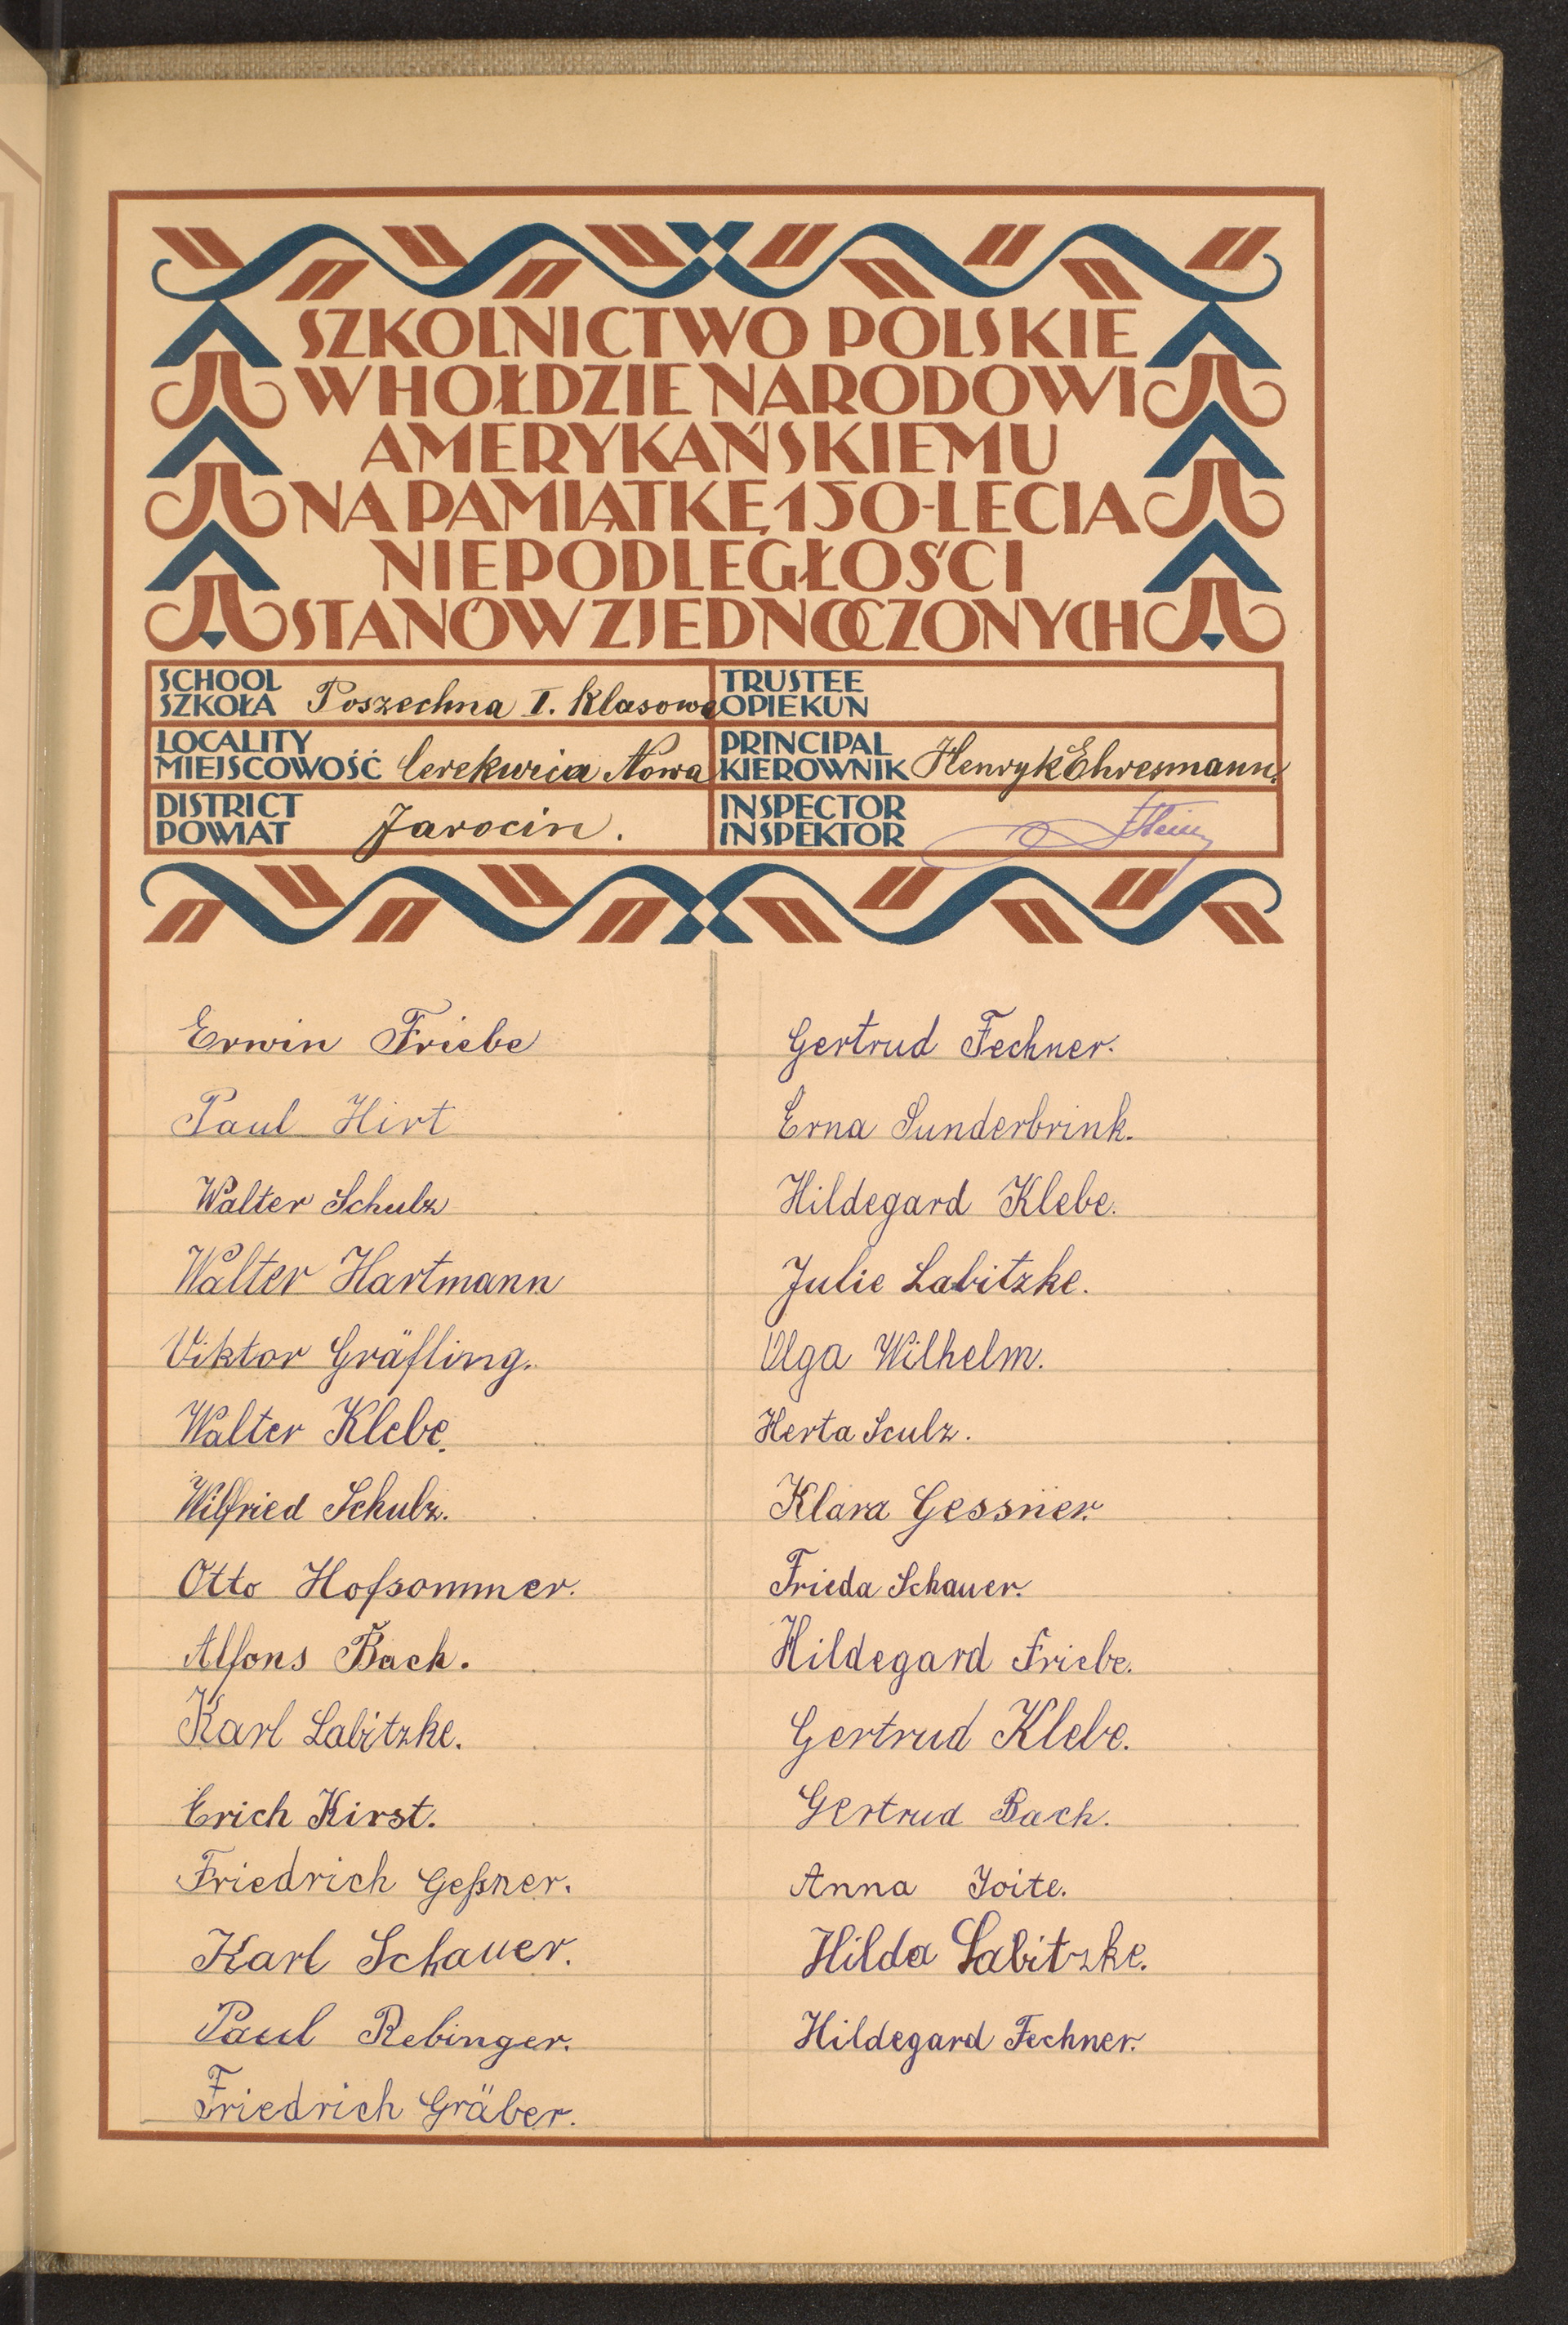 SZKOLNICTWO POLSKIE
W HOŁDZIE NARODOWI
AMERYKAŃSKIEMU
NA PAMIĄTKĘ 150-LECIA
NIEPODLEGŁOŚCI
STANÓW ZJEDNOCZONYCH
SCHOOL
SZKOŁA Poszechna I. Klasowa
TRUSTEE
OPIEKUN
LOCALITY
MIEJSCOWOŚĆ Cerekwica Nowa
PRINCIPAL
KIEROWNIK Henryk Ehresmann.
DISTRICT
POWIAT Jarocin.
INSPECTOR
INSPEKTOR
Erwin Friebe
Paul Hirt
Walter Schulz
Walter Hartmann
Viktor Gräfling.
Walter Klebe.
Wilfried Schulz.
Otto Hofsommer.
Alfons Bach.
Karl Labitzke.
Erich Kirst.
Friedrich Geßner.
Karl Schauer.
Paul Rebinger.
Friedrich Gräber.
Gertrud Fechner.
Erna Sunderbrink.
Hildegard Klebe.
Julie Labitzke.
Olga Wilhelm.
Herta Sculz.
Klara Gessner.
Frieda Schauer.
Hildegard Friebe.
Gertrud Klebe.
Gertrud Bach.
Anna Joite.
Hilda Labitzke.
Hildegard Fechner.